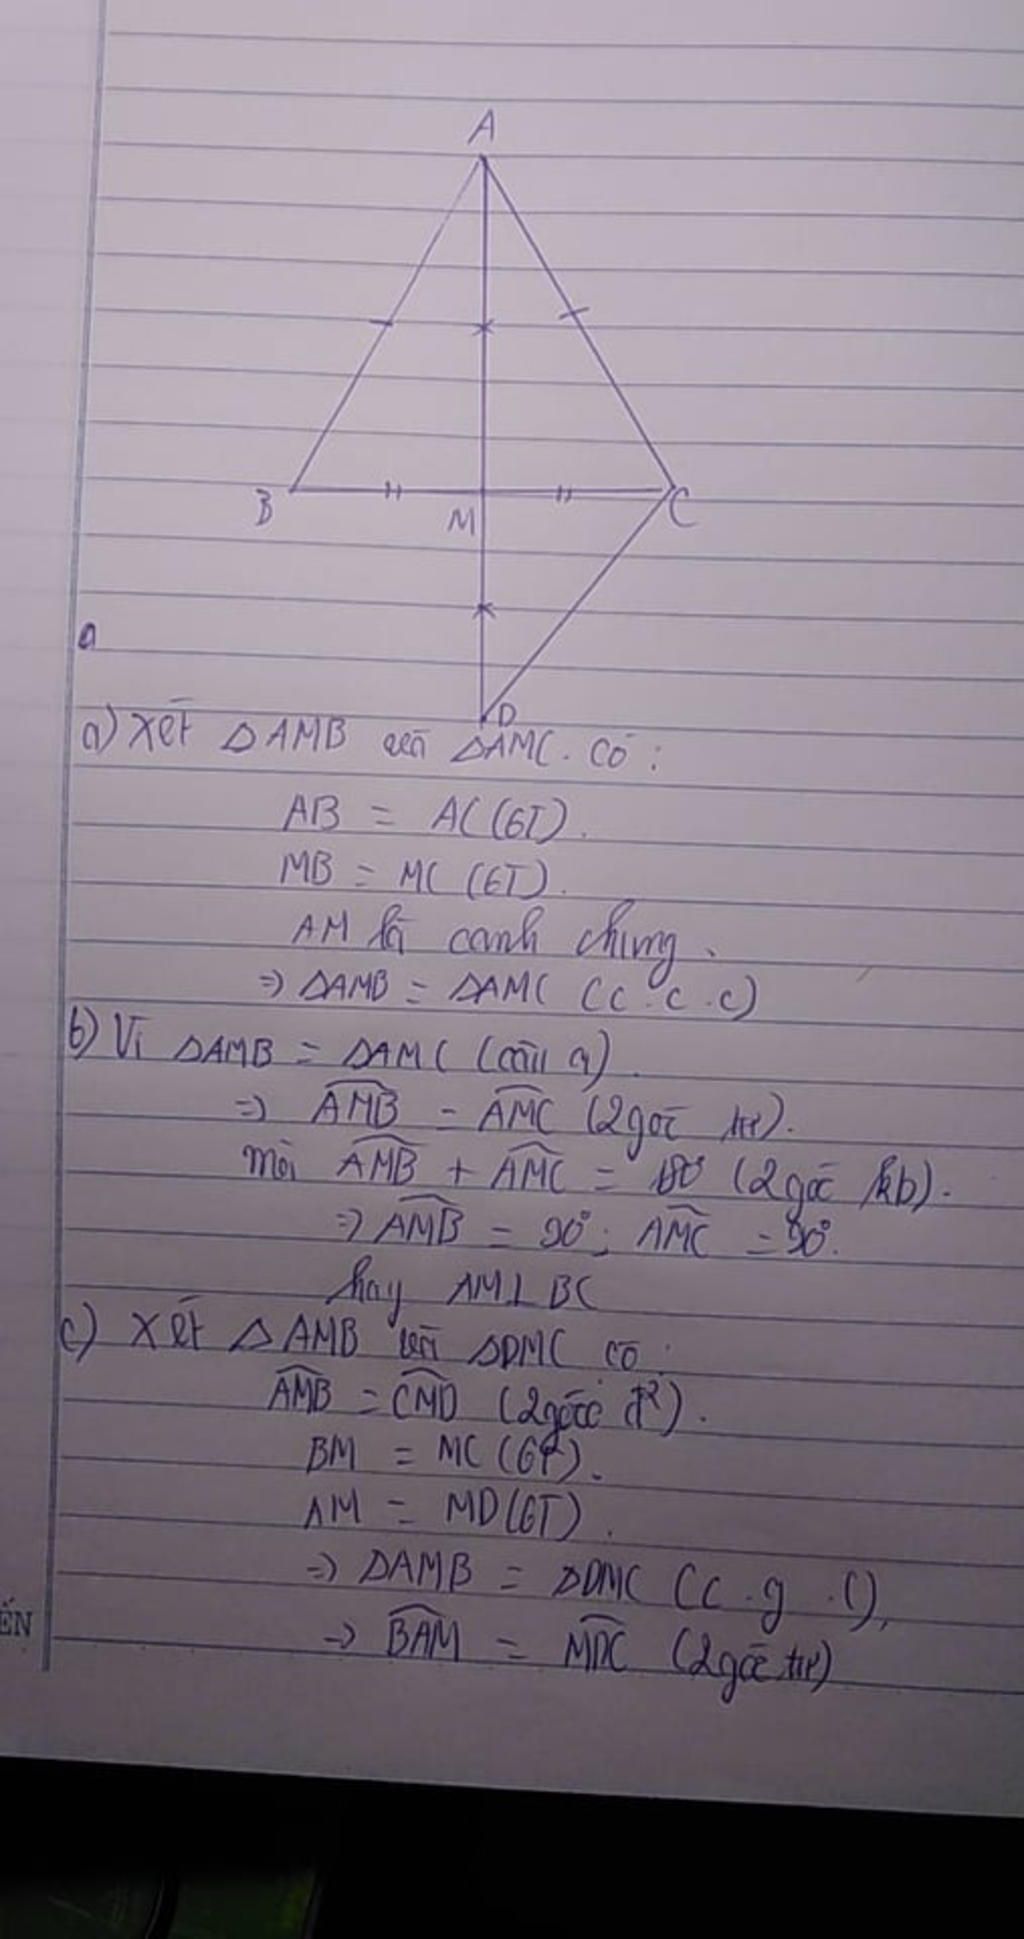 A
B
M
C
D
a
a) Xét ΔAMB và ΔAMC. có:
AB = AC (GT).
MB = MC (GT).
AM là cạnh chung.
=> ΔAMB = ΔAMC (c.c.c)
b) Vì ΔAMB = ΔAMC (câu a).
=> \widehat{AMB} = \widehat{AMC} (2 góc tư).
Mời \widehat{AMB} + \widehat{AMC} = 180° (2 góc kb).
=> \widehat{AMB} = 90°; \widehat{AMC} = 90°.
hay AM⊥BC
c) Xét ΔAMB và ΔDMC có:
\widehat{AMB} = \widehat{CMD} (2 góc đ²).
BM = MC (GT).
AM = MD (GT).
=> ΔAMB = ΔDMC (c.g.c),
ẾN
=> \widehat{BAM} = \widehat{MDC} (2 góc tư)